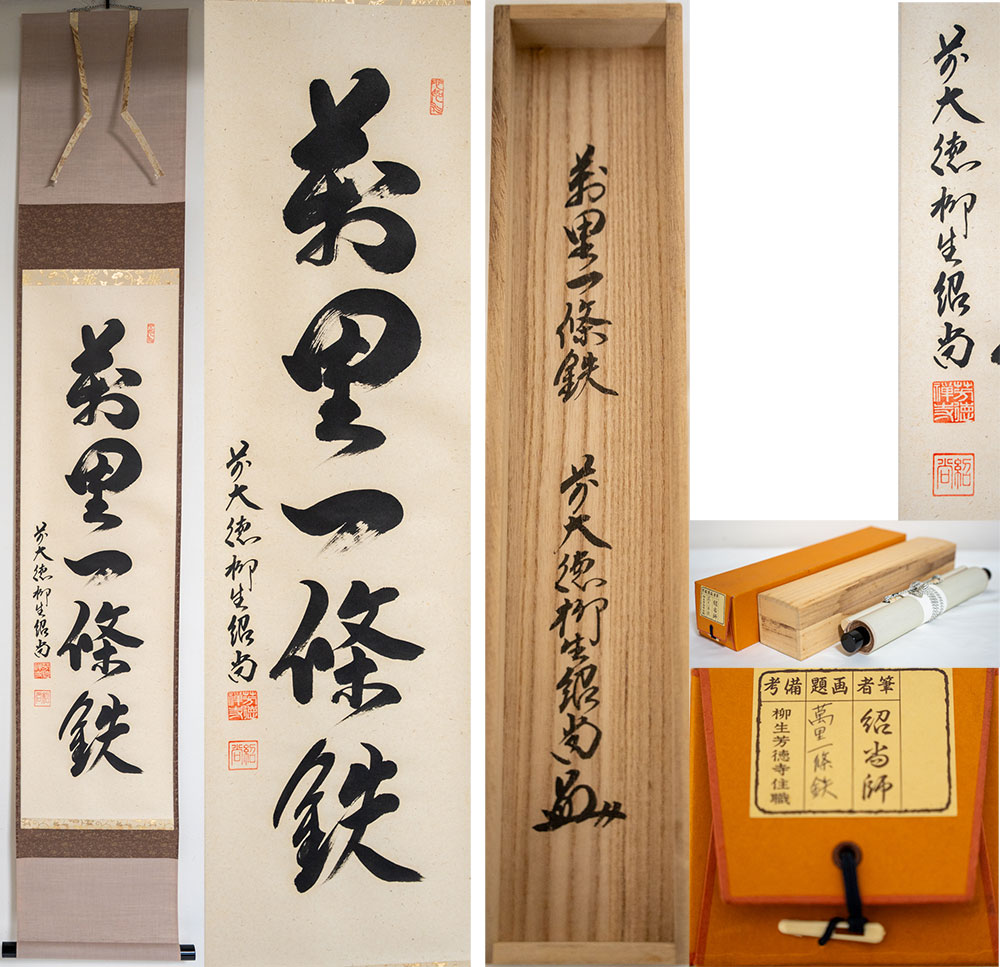 萬里一條鉄
前大徳柳生紹尚
萬里一條鉄
前大徳柳生紹尚
芳徳禅寺
紹尚
萬里一條鉄
前大徳柳生紹尚
前大徳柳生紹尚
芳徳禅寺
紹尚
筆者
紹尚師
画題
萬里一條鉄
備考
柳生芳徳寺住職